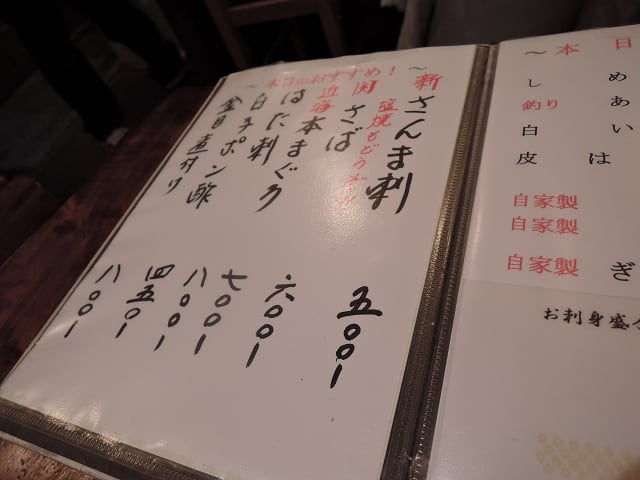 ～本日のおすすめ！～
新さんま刺 五〇〇ー
塩焼もどうぞ!!
関さば 六〇〇ー
近海本まぐろ 七〇〇ー
はた刺 八〇〇ー
白子ポン酢 四五〇ー
金目煮付け 八〇〇ー
～本 日
しめ
釣りあ
白い
皮は
自家製
自家製
自家製 ぎ
お刺身盛